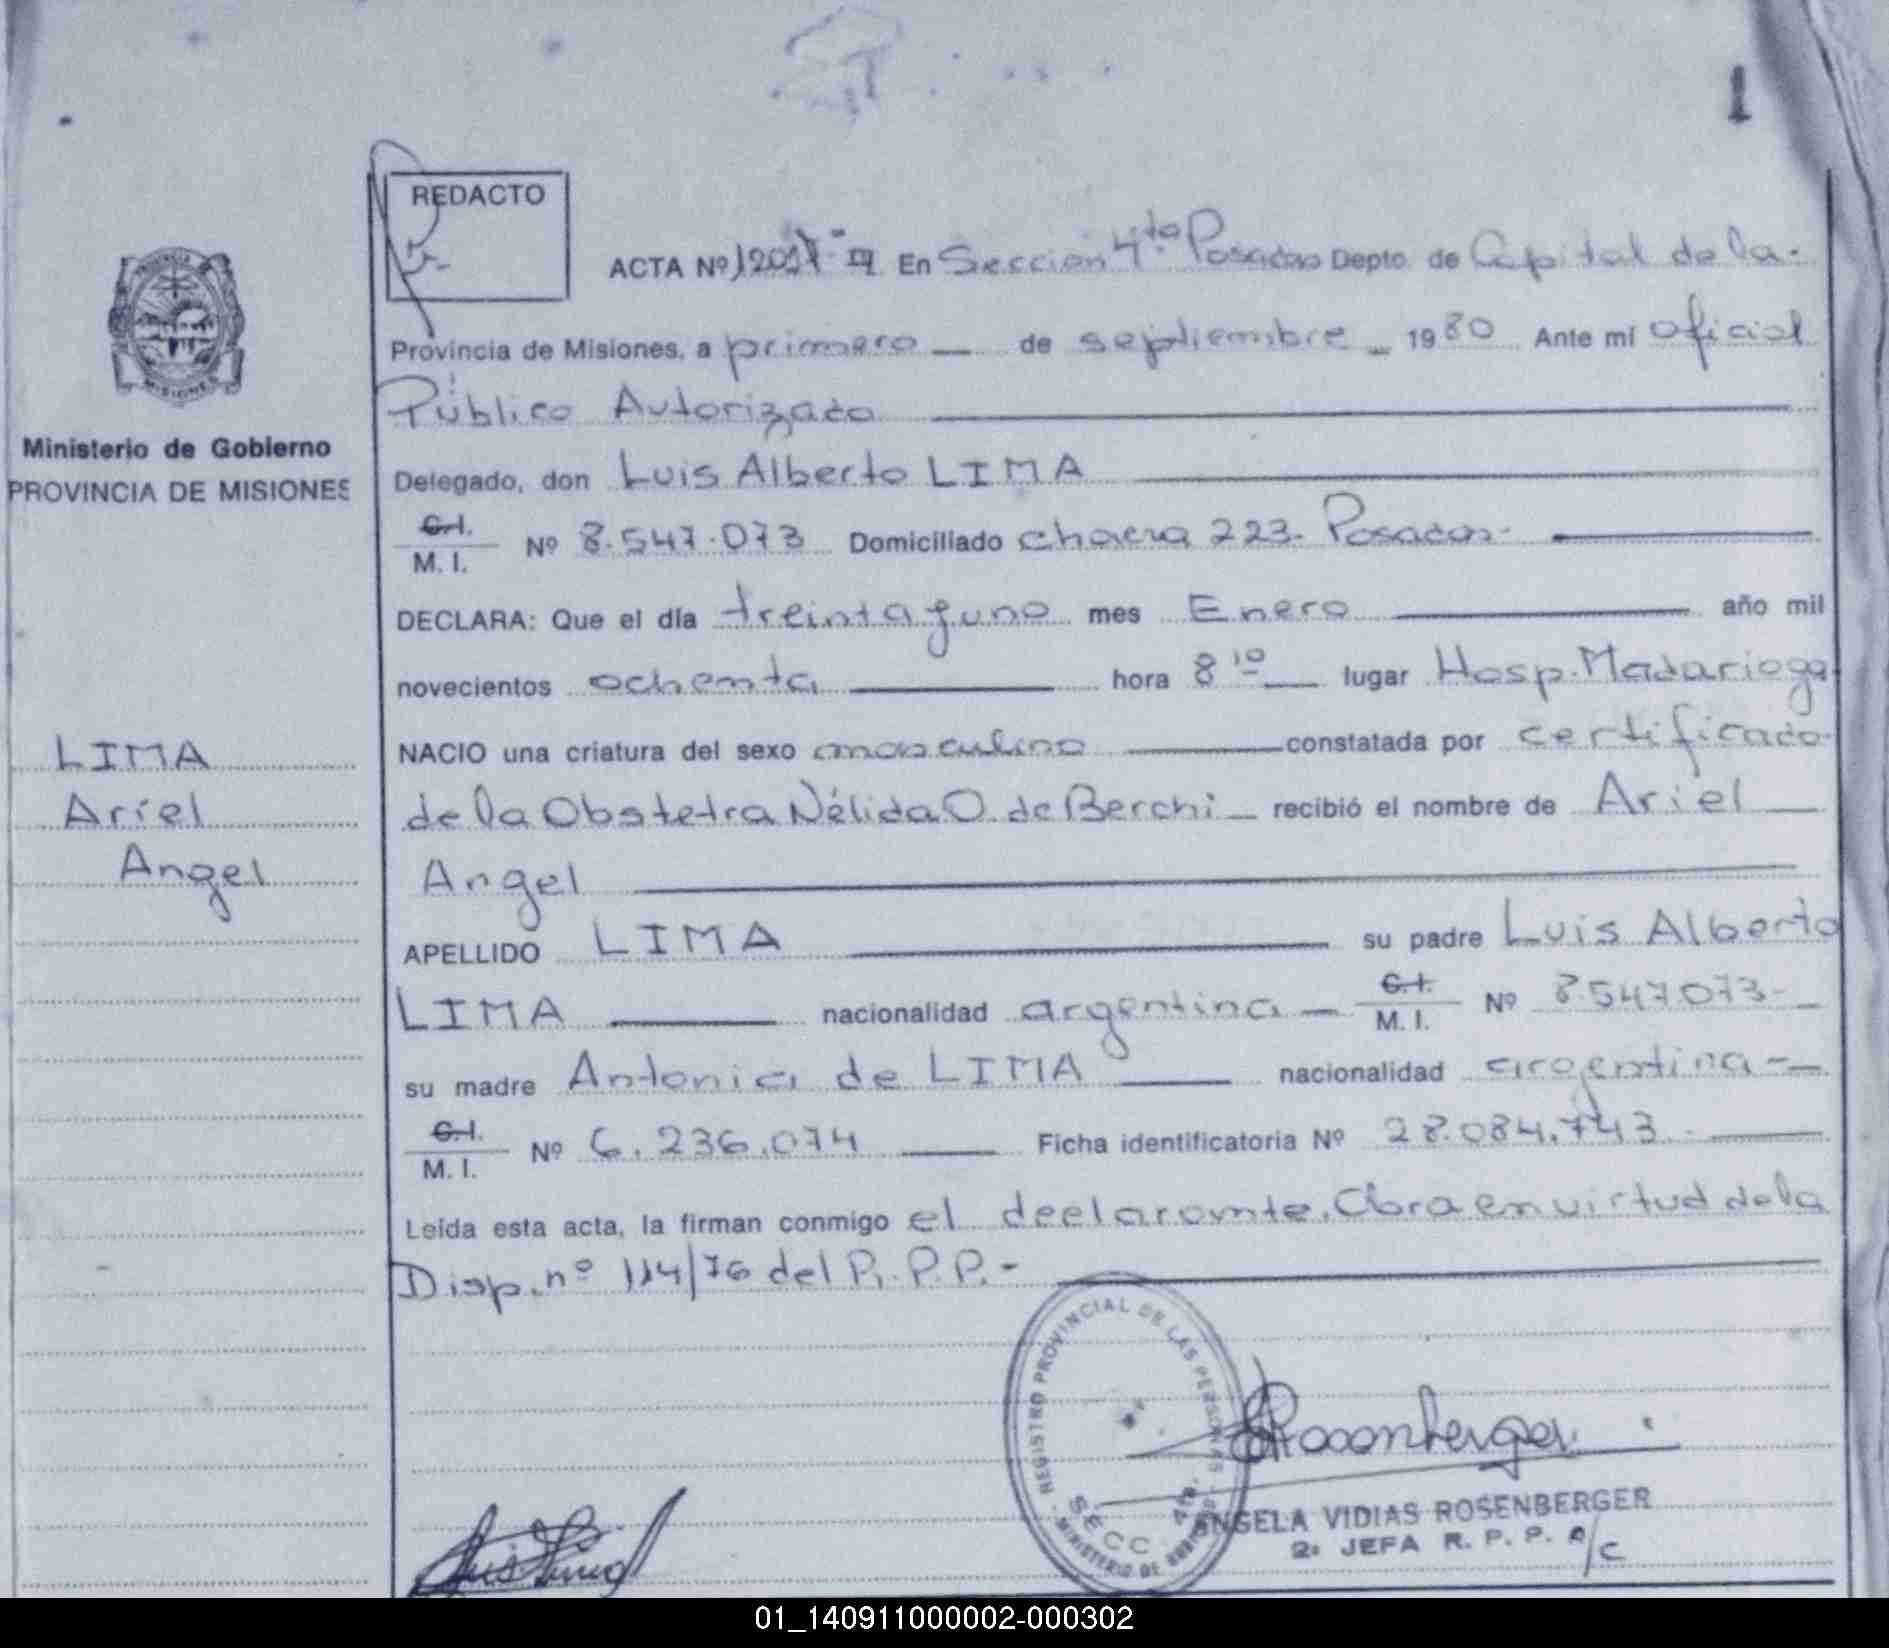 1
REDACTO
ACTA Nº En Sección 4ta Posadas Depto. de Capital de la.
Provincia de Misiones, a primero — de septiembre — 1980 Ante mí oficial
Público Autorizado
Delegado, don Luis Alberto LIMA
C.I.
M. I. Nº 8.547.073 Domiciliado chacra 223. Posadas.
DECLARA: Que el día treinta y uno mes Enero año mil
novecientos ochenta hora 8 10 lugar Hosp. Madariaga
NACIO una criatura del sexo masculino constatada por certificado
de la Obstetra Nélida O. de Berchi recibió el nombre de Ariel
Angel
APELLIDO LIMA su padre Luis Alberto
LIMA nacionalidad argentina C.I. M. I. Nº 8.547.073-
su madre Antonia de LIMA nacionalidad argentina-
C.I.
M. I. Nº 6.236.074 Ficha identificatoria Nº 28.084.743.
Leída esta acta, la firman conmigo el declarante. Obra en virtud de la
Disp. nº 114/76 del R. P. P.-
PROVINCIA DE
MISIONES
Ministerio de Gobierno
PROVINCIA DE MISIONES
LIMA
Ariel
Angel
REGISTRO PROVINCIAL DE LAS PERSONAS
SECC 4ta.
MINISTERIO DE
Rosenberger
ANGELA VIDIAS ROSENBERGER
2ª JEFA R. P. P. A/C
Luis Lima
01_140911000002-000302